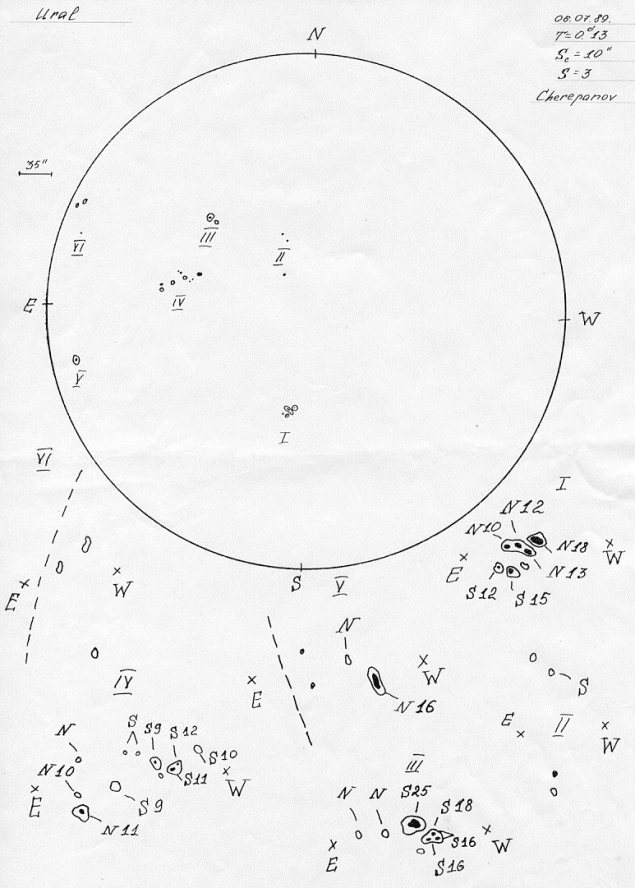 Ural
06.07.89.
T=0.ᵈ13
Sₑ=10"
S=3
Cherepanov
N
35"
VI
III
II
IV
E
W
V
I
S
VI
E
W
I
N12
N10
N18
N13
E
W
S12
S15
V
N
E
W
N16
S
II
E
W
IV
N
S
S9
S12
S10
S11
N10
E
W
S9
N11
III
N
N
S25
S18
S16
S16
E
W